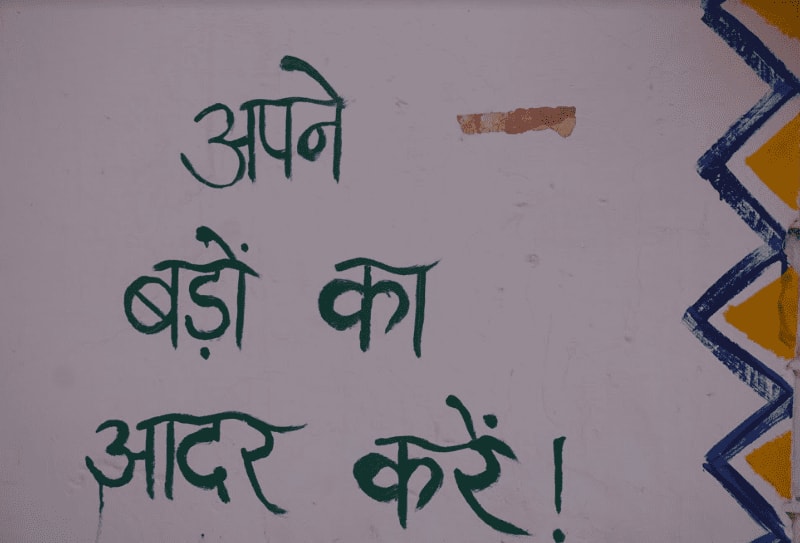 अपने
बड़ों का
आदर करें!